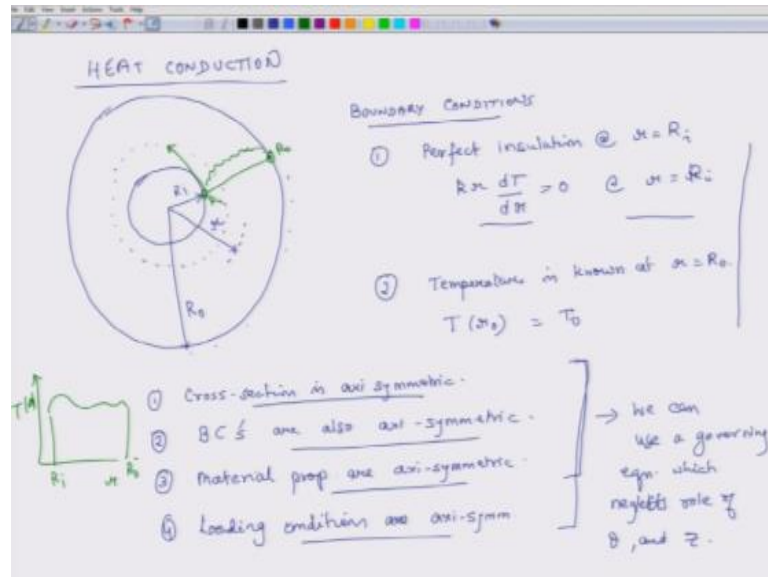 HEAT CONDUCTION
R₀
R₁
r
R₀
BOUNDARY CONDITIONS
① Perfect insulation @ r = Rᵢ
kr dT/dr = 0 @ r = Rᵢ
② Temperature is known at r = R₀.
T (r₀) = T₀
Rᵢ r R₀
① Cross-section is axi symmetric.
② BC's are also axi-symmetric.
③ Material prop are axi-symmetric.
④ Loading condition are axi-symm
→ We can
use a governing
eqn. which
neglects role of
θ, and z.